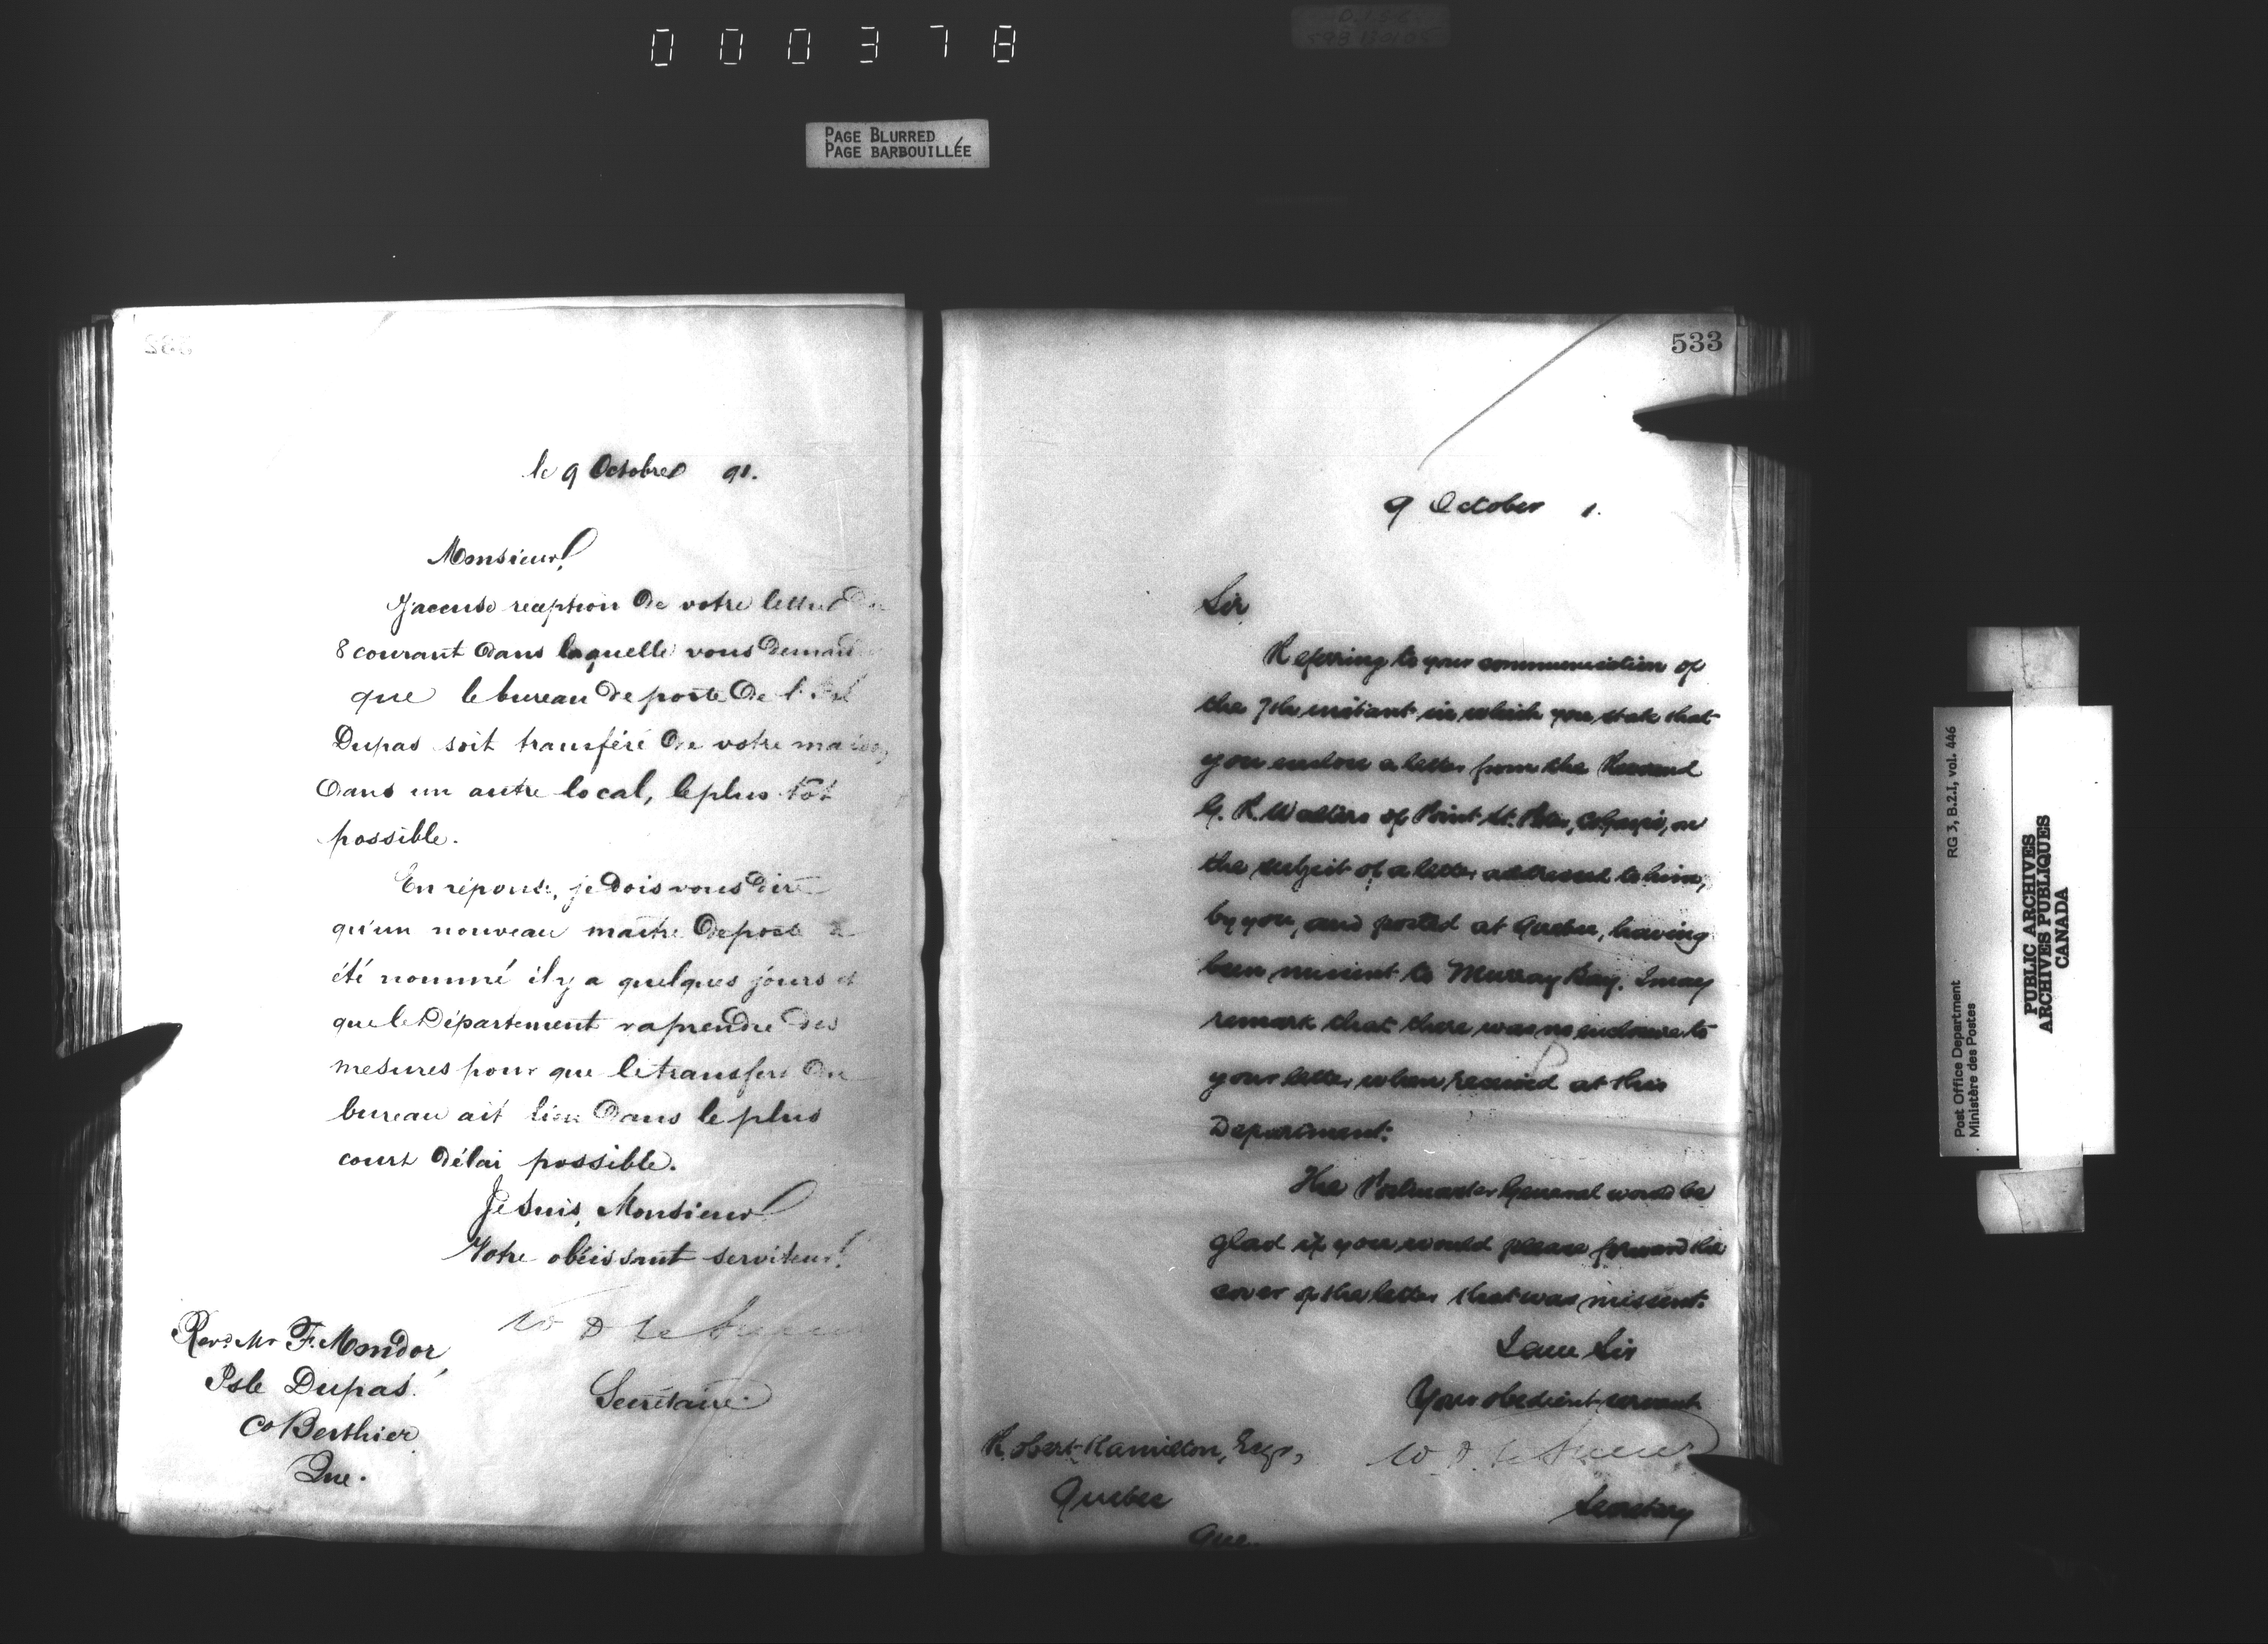 000378
PAGE BLURRED
PAGE BARBOUILLÉE
le 9 Octobre 91.
Monsieur,
J'accuse reception de votre lettre du
8 courant dans laquelle vous
que le bureau de poste de l'
Dupas soit transféré de votre maison
dans un autre local, le plus tôt
possible.
En réponse, je dois vous dire
qu'un nouveau maitre de poste a
été nommé il y a quelques jours et
que le Département va prendre des
mesures pour que le transfert du
bureau ait lieu dans le plus
court délai possible.
Je suis, Monsieur
Votre obéissant serviteur,
W D Le Sueur
Secrétaire
Revd. Mr F. Mondor,
Isle Dupas,
Co Berthier
Que.
533
9 October 1.
Sir,
Referring to your communication of
the 7th instant in which you state that
you enclose a letter from the Reverend
G. R. Walters of Point St. Peter, Co. Gaspé, on
the subject of a letter addressed to him,
by you, and posted at Quebec, having
been missent to Murray Bay. I may
remark that there was no enclosure to
your letter when received at this
Department.
The Postmaster General would be
glad if you would please forward the
cover of the letter that was missent.
I am Sir
Your obedient servant
W. D. Le Sueur
Secretary
Robert Hamilton, Esqr,
Quebec
Que.
RG 3, B.2.I, vol. 446
Post Office Department
Ministère des Postes
PUBLIC ARCHIVES
ARCHIVES PUBLIQUES
CANADA